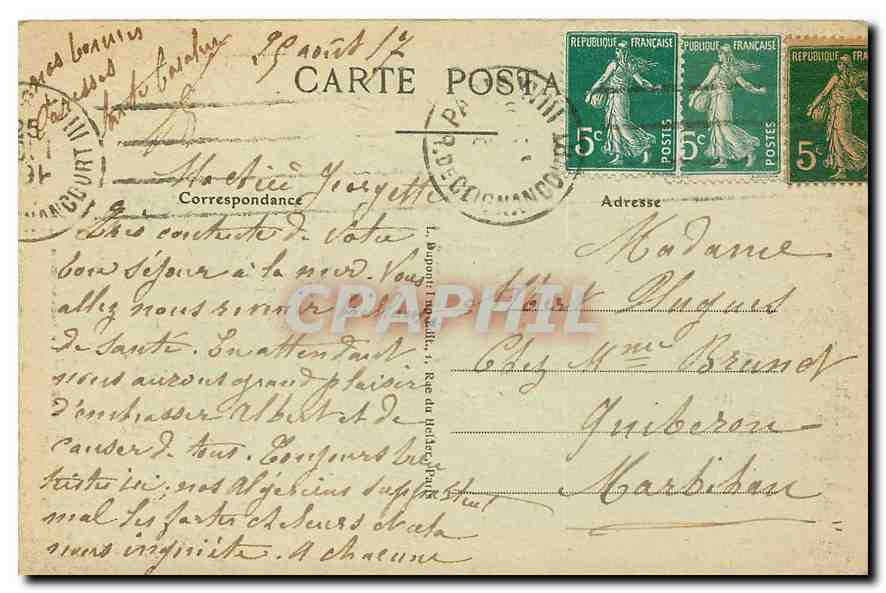 nos bonnes
Caresses
tante
25 août 17
CARTE POSTA
REPUBLIQUE FRANÇAISE
5c
POSTES
REPUBLIQUE FRANÇAISE
5c
POSTES
REPUBLIQUE FRANÇAISE
5c
PA XVIII
R. DE CLIGNANCOURT
NANCOURT
Georgette
Correspondance
Adresse
Très contente de votre
bon séjour à la mer. Vous
allez nous revenir
de santé. En attendant
nous aurons grand plaisir
d'embrasser Albert et de
causer de tous. Toujours bien
triste ici, nos Algériens supportent
mal les fortes chaleurs et cela
nous inquiète. A chacune
L. Dupont, Imp.-Edit., 1, Rue du Helder, Paris
Madame
Albert Hugues
Chez Mme Brunet
Quiberon
Morbihan
CPAPHIL